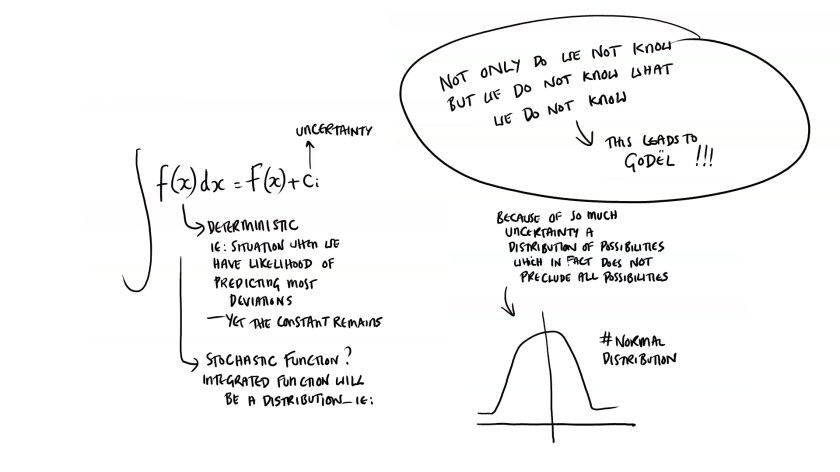 NOT ONLY DO WE NOT KNOW
BUT WE DO NOT KNOW WHAT
WE DO NOT KNOW
THIS LEADS TO
GODËL !!!
UNCERTAINTY
∫ f(x)dx = F(x) + Ci
DETERMINISTIC
IE: SITUATION WHEN WE
HAVE LIKELIHOOD OF
PREDICTING MOST
DEVIATIONS
— YET THE CONSTANT REMAINS
STOCHASTIC FUNCTION?
INTEGRATED FUNCTION WILL
BE A DISTRIBUTION_ IE:
BECAUSE OF SO MUCH
UNCERTAINTY A
DISTRIBUTION OF POSSIBILITIES
WHICH IN FACT DOES NOT
PRECLUDE ALL POSSIBILITIES
#NORMAL
DISTRIBUTION